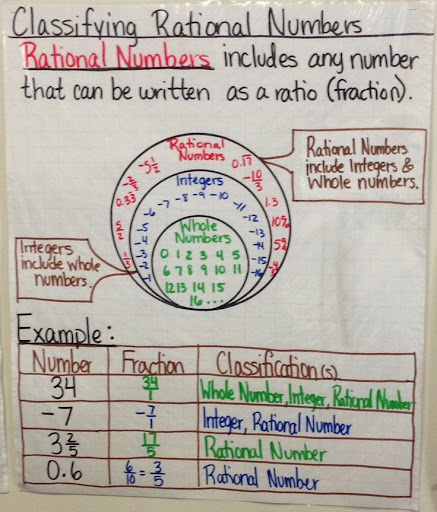 Classifying Rational Numbers
Rational Numbers includes any number
that can be written as a ratio (fraction).
Rational
Numbers
-5 1/2
0.17
-2/3
-10/3
0.33
1.3
5/2
10%
1/3
5 2/4
Integers
-1 -2 -3 -4 -5 -6 -7 -8 -9 -10 -11 -12 -13 -14 -15 -16
Whole
Numbers
0 1 2 3 4 5
6 7 8 9 10 11
12 13 14 15
16 ...
Rational Numbers
include Integers &
Whole numbers.
Integers
include whole
numbers.
Example:
Number Fraction Classification(s)
34 34/1 Whole Number, Integer, Rational Number
-7 -7/1 Integer, Rational Number
3 2/5 17/5 Rational Number
0.6 6/10 = 3/5 Rational Number